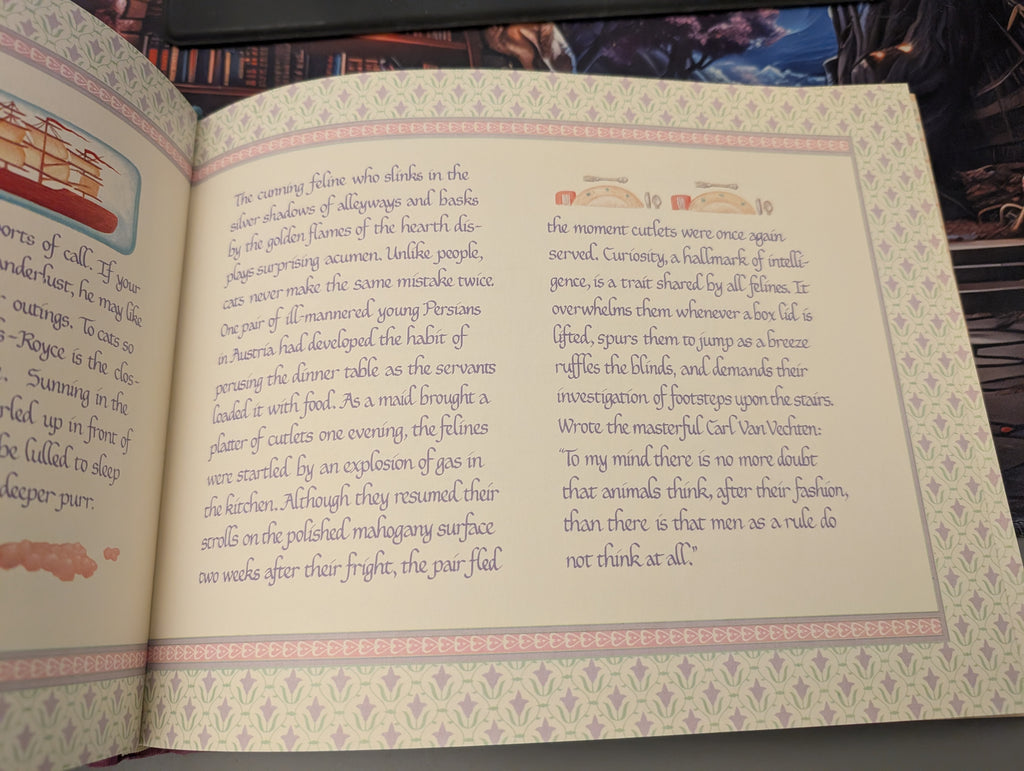 ports of call. If your
he may like
outings. To cats so
-Royce is the clos-
Sunning in the
up in front of
be lulled to sleep
deeper purr.
The cunning feline who slinks in the
silver shadows of alleyways and basks
by the golden flames of the hearth dis-
plays surprising acumen. Unlike people,
cats never make the same mistake twice.
One pair of ill-mannered young Persians
in Austria had developed the habit of
perusing the dinner table as the servants
loaded it with food. As a maid brought a
platter of cutlets one evening, the felines
were startled by an explosion of gas in
the kitchen. Although they resumed their
strolls on the polished mahogany surface
two weeks after their fright, the pair fled
the moment cutlets were once again
served. Curiosity, a hallmark of intelli-
gence, is a trait shared by all felines. It
overwhelms them whenever a box lid is
lifted, spurs them to jump as a breeze
ruffles the blinds, and demands their
investigation of footsteps upon the stairs.
Wrote the masterful Carl Van Vechten:
"To my mind there is no more doubt
that animals think, after their fashion,
than there is that men as a rule do
not think at all."